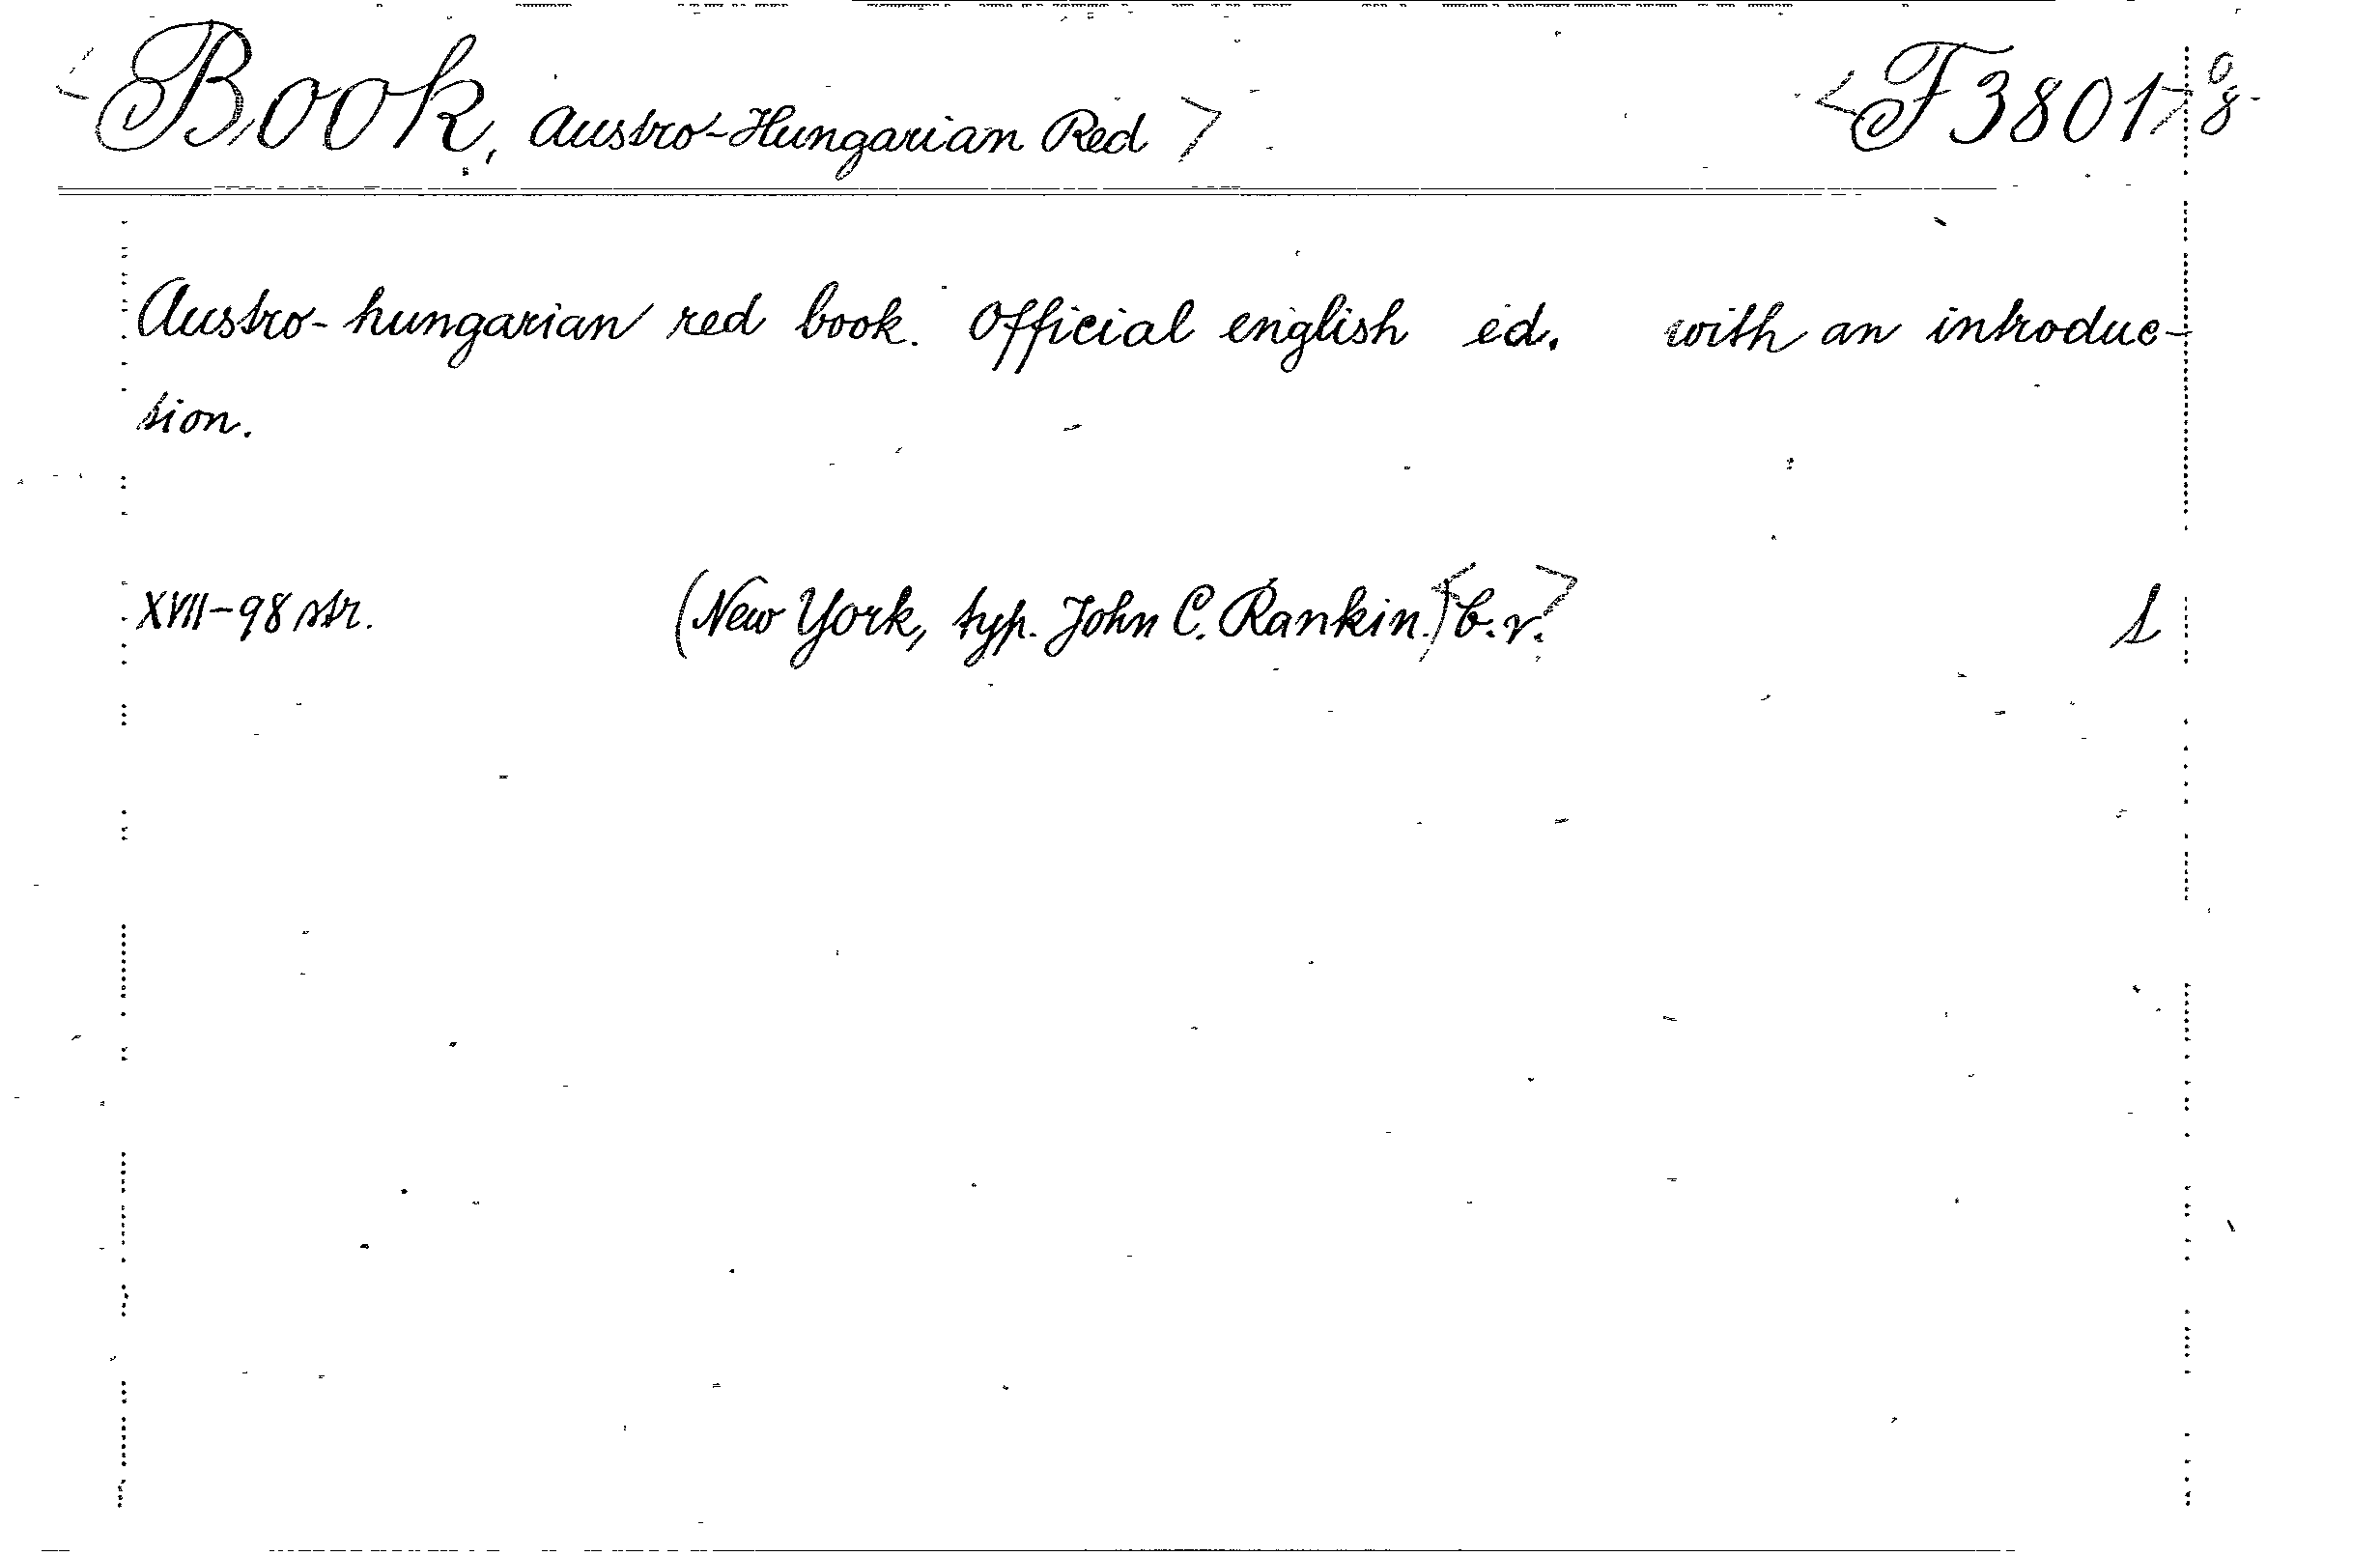 <Book, Austro-Hungarian Red> <F3801> 8°
Austro-hungarian red book. Official english ed. with an introduc-
tion.
XVII-98 str. (New York, typ. John C. Rankin.) <b.r.> 1